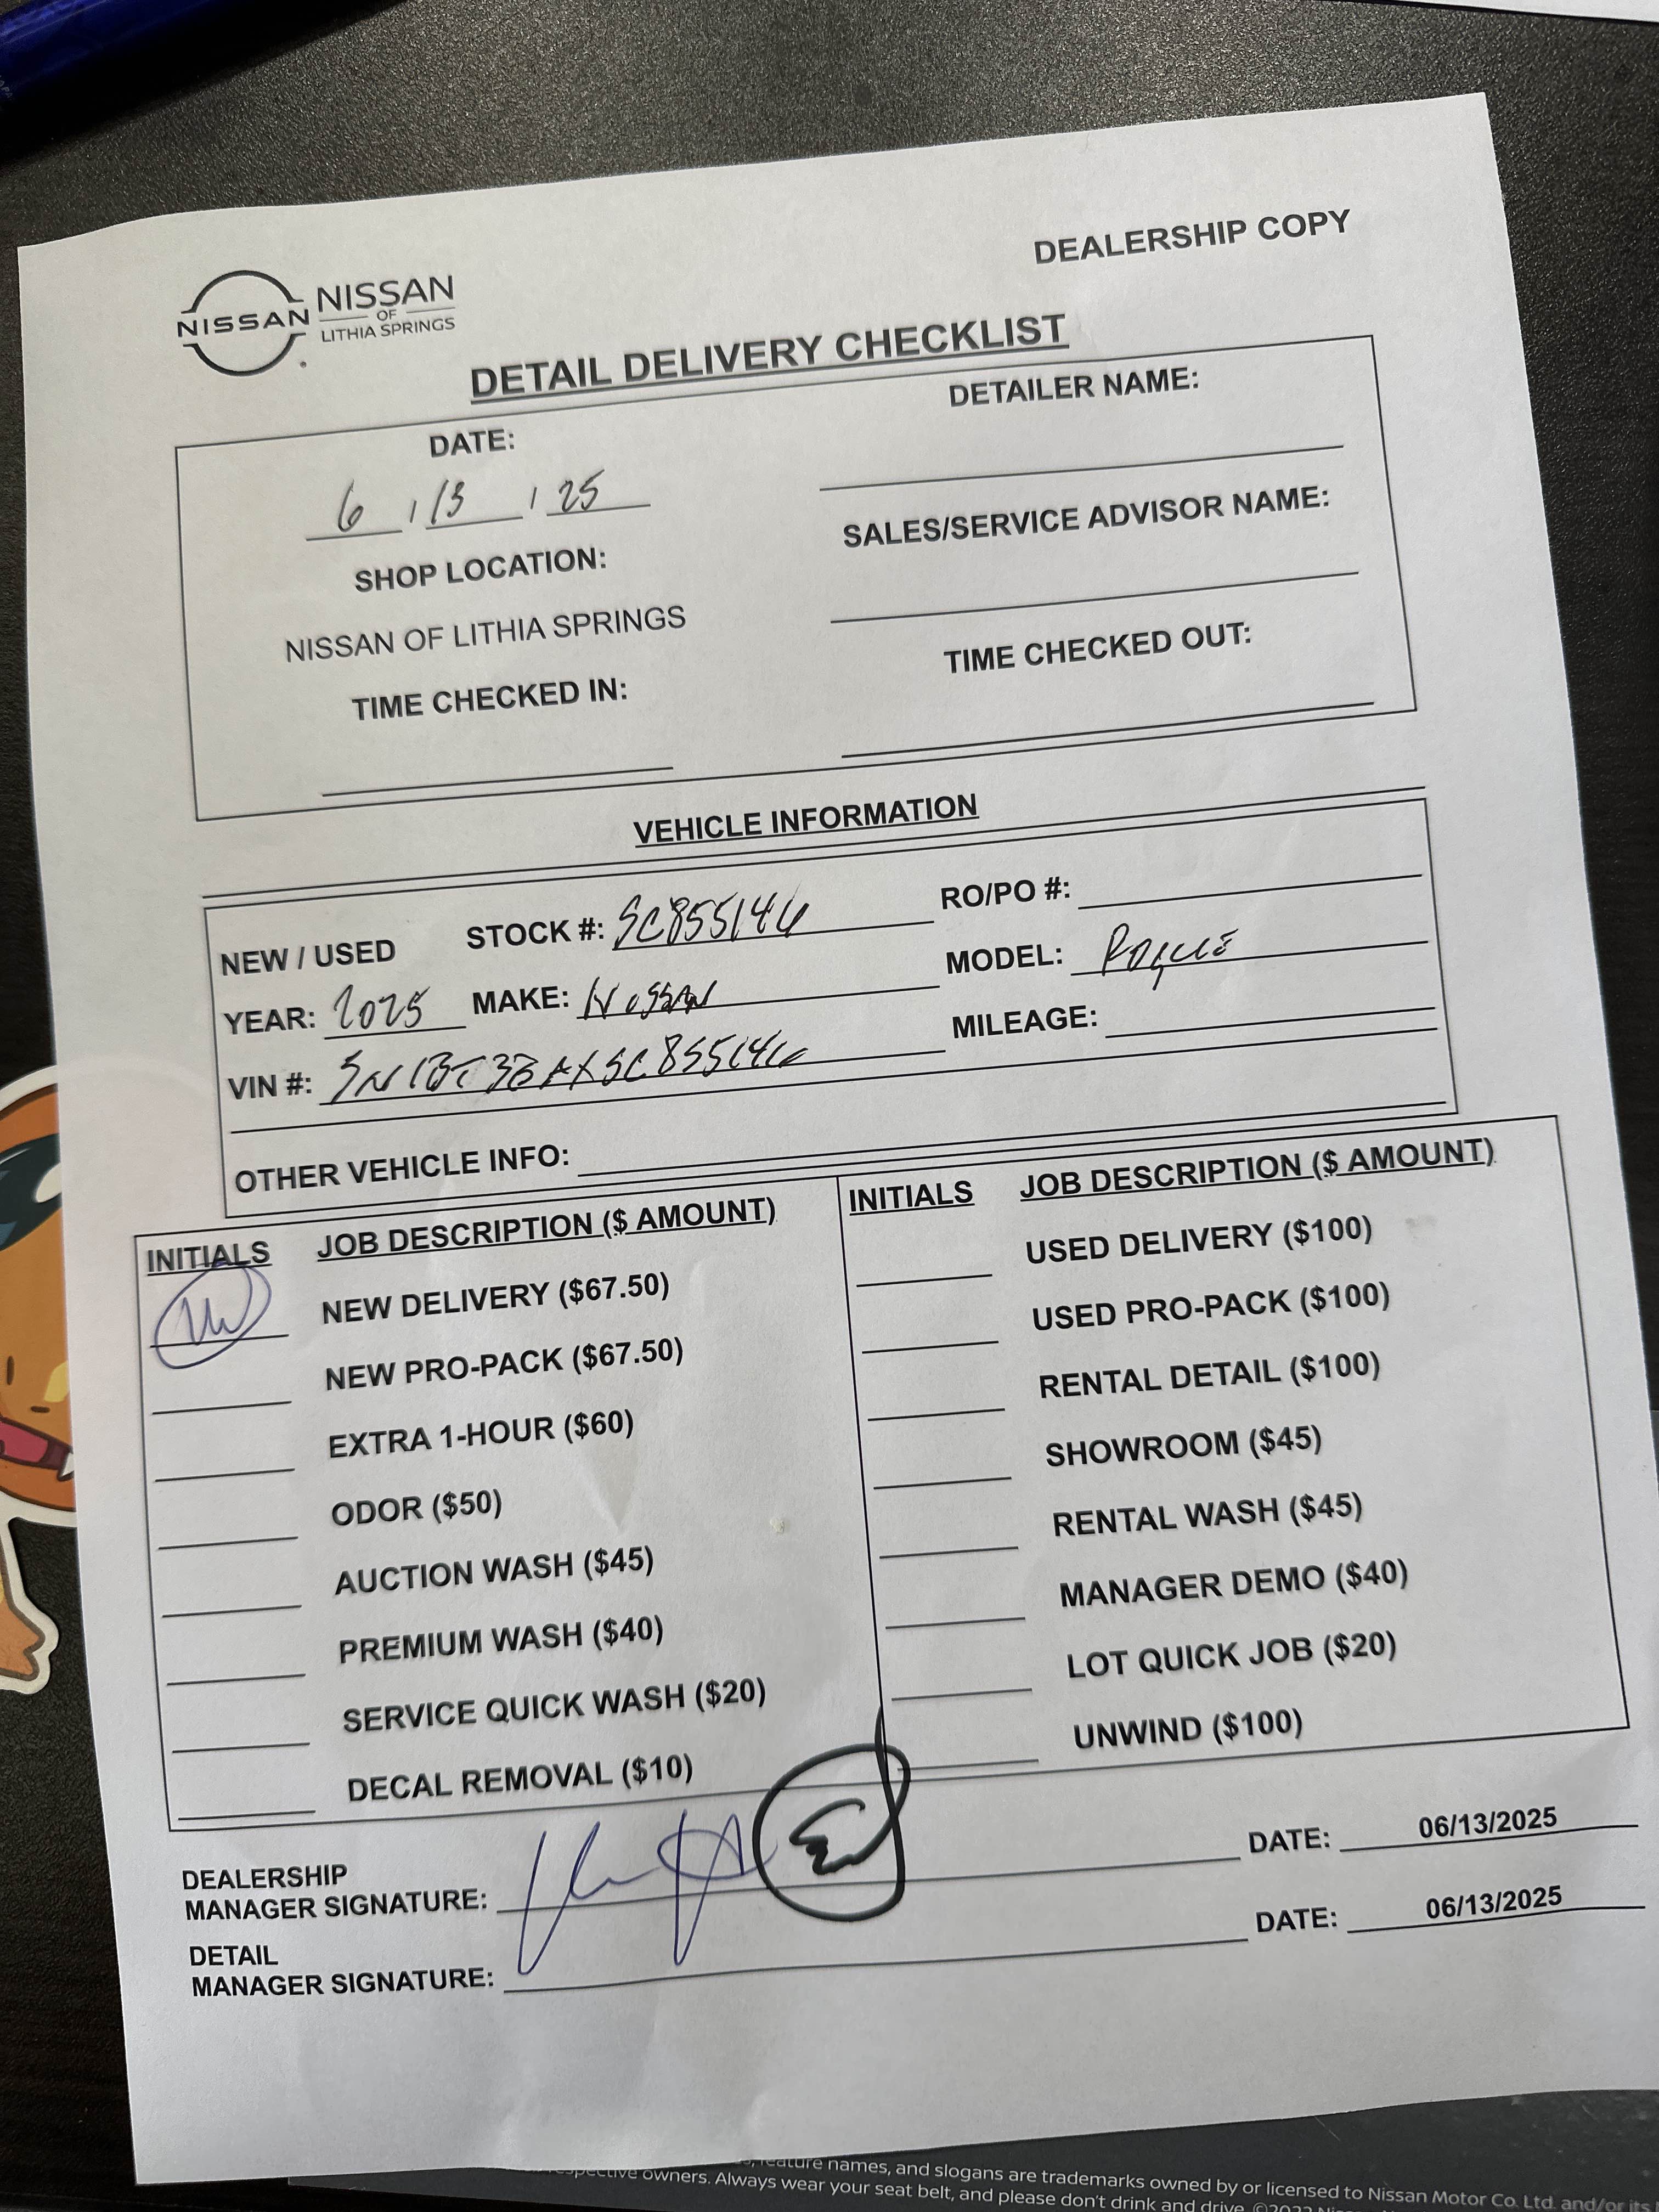 DEALERSHIP COPY
NISSAN NISSAN
OF
LITHIA SPRINGS
DETAIL DELIVERY CHECKLIST
DATE:
6 / 13 / 25
DETAILER NAME:
SHOP LOCATION:
NISSAN OF LITHIA SPRINGS
SALES/SERVICE ADVISOR NAME:
TIME CHECKED IN:
TIME CHECKED OUT:
VEHICLE INFORMATION
NEW / USED STOCK #: SC855146 RO/PO #:
YEAR: 2025 MAKE: NISSAN MODEL: ROGUE
VIN #: 5N1BT3BAXSC855146 MILEAGE:
OTHER VEHICLE INFO:
INITIALS JOB DESCRIPTION ($ AMOUNT)
NEW DELIVERY ($67.50)
NEW PRO-PACK ($67.50)
EXTRA 1-HOUR ($60)
ODOR ($50)
AUCTION WASH ($45)
PREMIUM WASH ($40)
SERVICE QUICK WASH ($20)
DECAL REMOVAL ($10)
INITIALS JOB DESCRIPTION ($ AMOUNT)
USED DELIVERY ($100)
USED PRO-PACK ($100)
RENTAL DETAIL ($100)
SHOWROOM ($45)
RENTAL WASH ($45)
MANAGER DEMO ($40)
LOT QUICK JOB ($20)
UNWIND ($100)
DEALERSHIP
MANAGER SIGNATURE: DATE: 06/13/2025
DETAIL
MANAGER SIGNATURE: DATE: 06/13/2025
feature names, and slogans are trademarks owned by or licensed to Nissan Motor Co. Ltd. and/or its
owners. Always wear your seat belt, and please don't drink and drive.